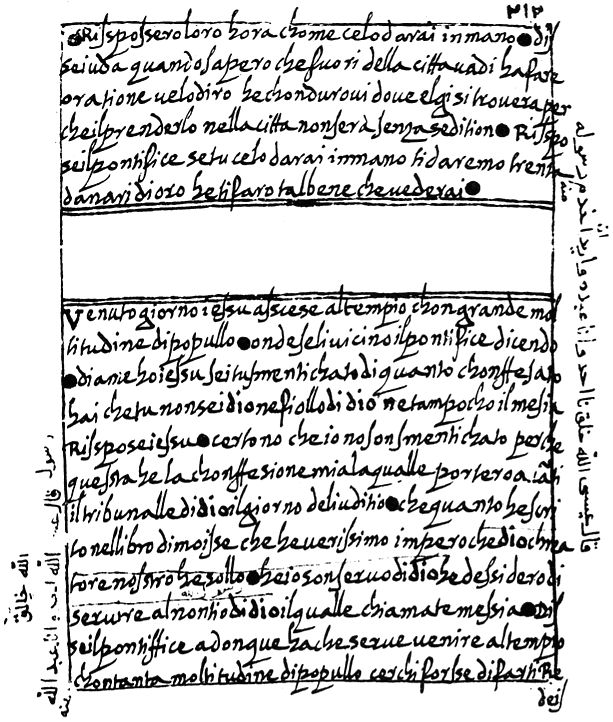 ٢١٢
Risspossero loro hora chome celo darai inmano ● dis
seiuda quando sapero che fuori della citta uadi ha fare
oratione uelo diro he chondurovi doue elgi si trouera per
che ilprenderlo nella citta non sera senza sedition ● Risspo
seilpontifice setu celo darai inmano ti daremo trenta
danari dioro he ti faro tal bene che vederai ●
Venuto giorno iessu asscese altempio chon grande mol
titudine dipopullo ● onde seli uicino ilpontifice dicendo
● diame ho iessu sei tu smentichato di quanto chonffesato
hai che tu non sei dio ne fiollo di dio ne tampocho il mesia
Risspose iessu ● certo no che io no son smentichato perche
questa he la chonffesione mia la qualle portero a iãti
il tribunalle di dio il giorno deliuditio ● che quanto he scri
to nel libro di moisse che he uerissimo impero che dio chrea
tore nosstro he sollo ● he io son seruo di dio he dessidero di
seruire al nontio di dio il qualle chiamate messia ● Dis
seilpontiffice adonque ha che serue uenire al tempio
chon tanta moltitudine di popullo cerchi forsse di farti Re
deis
قال عيسى الله خلقنا احد وانا عبده واريد اخدم رسوله
منه
الله احد وانا عبد الله
رسول
الله خلق
منه